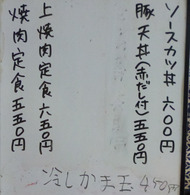 ソースカツ丼 六〇〇円
豚天丼(赤だし付)五五〇円
上焼肉定食 六五〇円
焼肉定食 五五〇円
冷しかま玉 450円